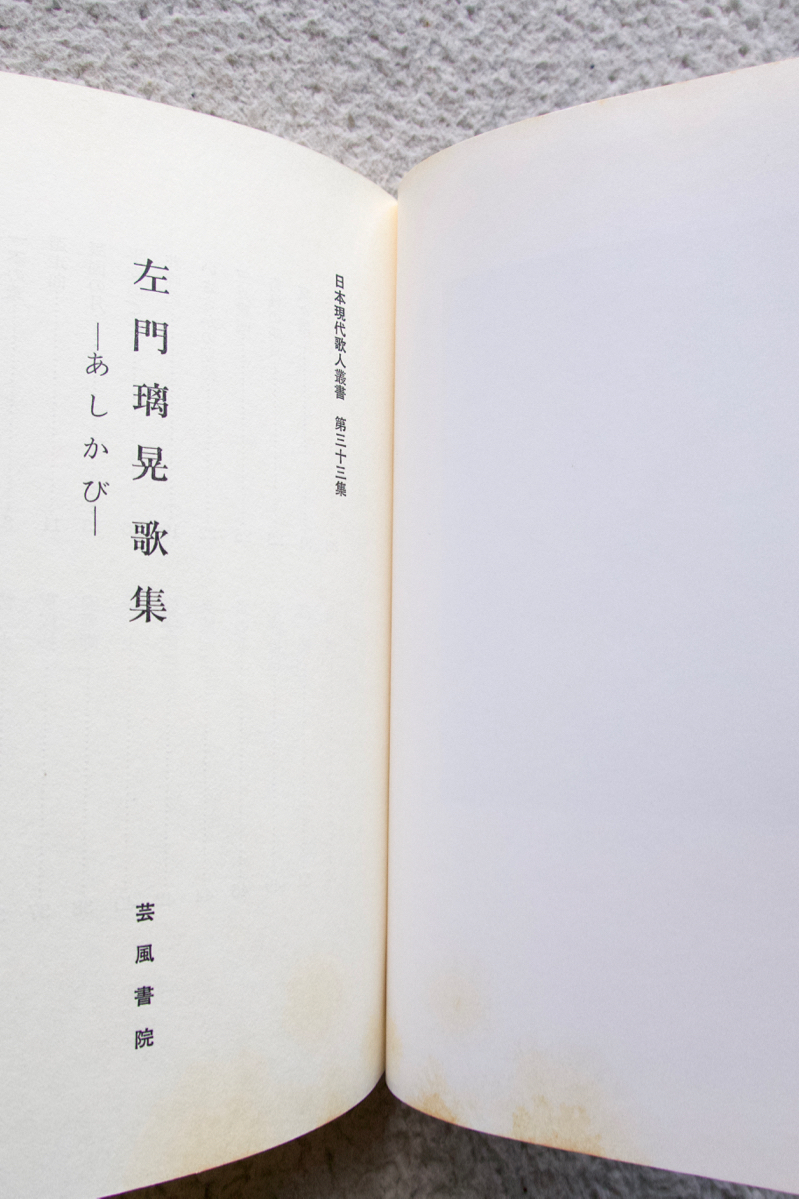 日本現代歌人叢書 第三十三集
左門璃晃歌集
―あしかび―
芸風書院